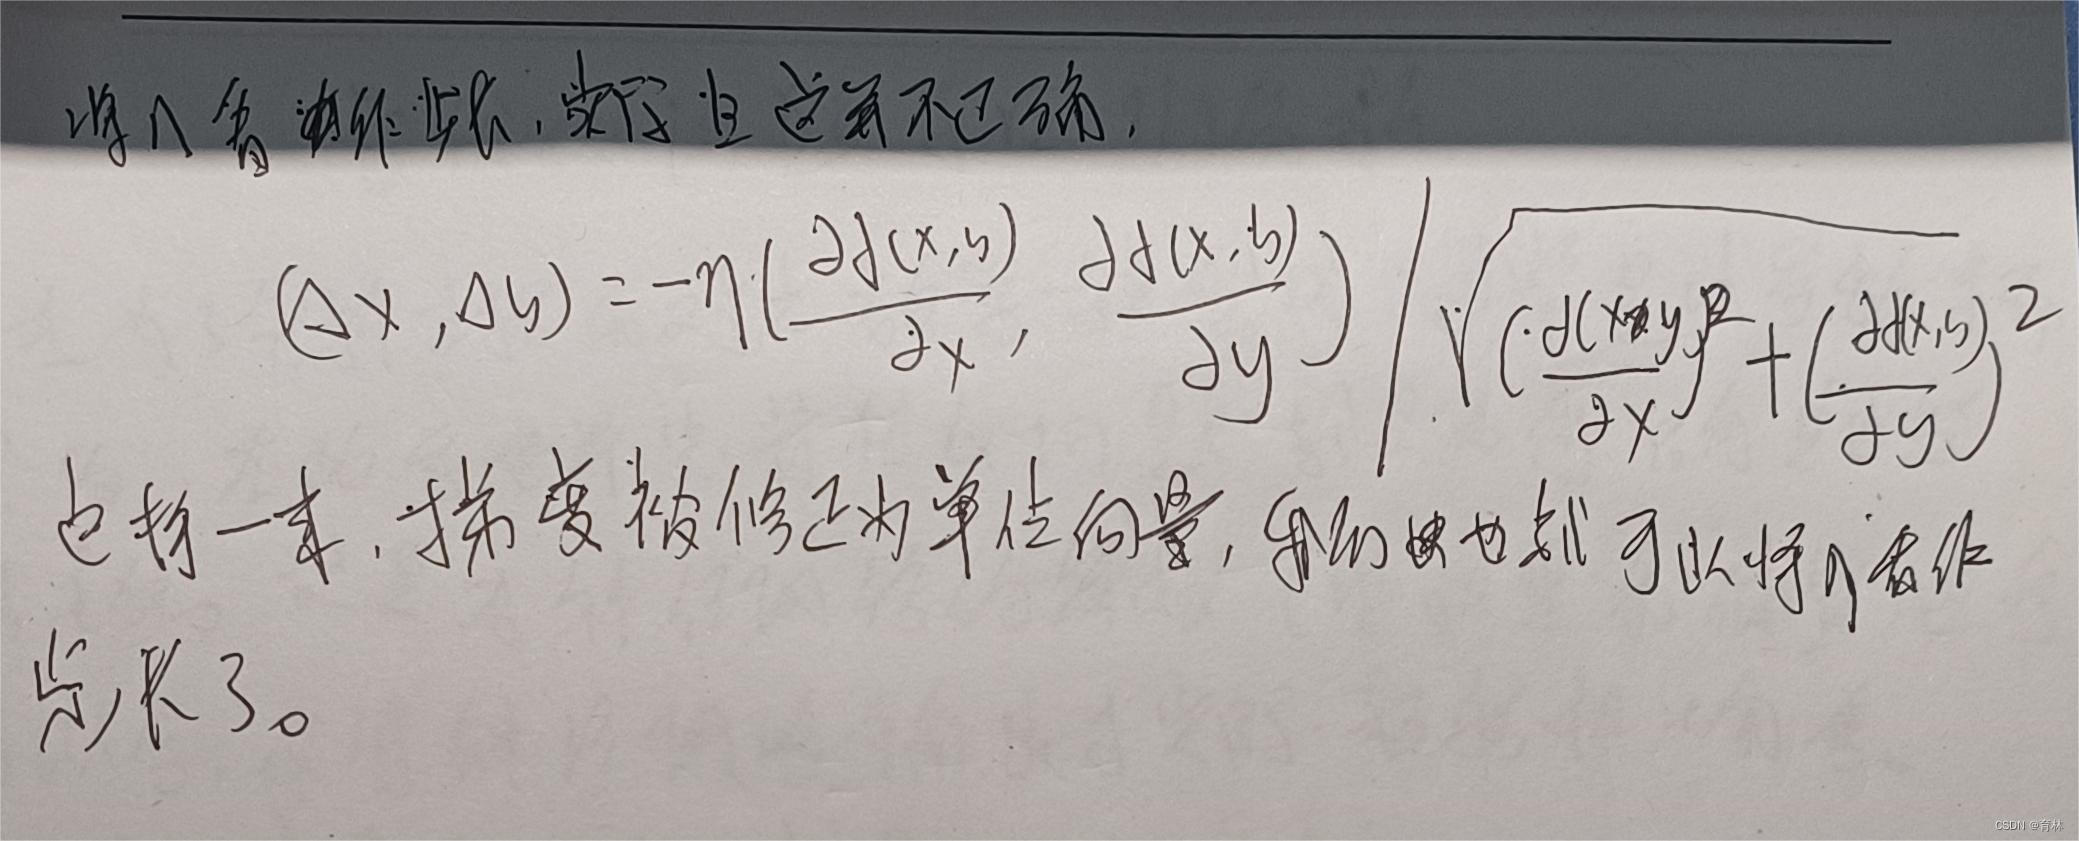 将η看作步长,实际上这并不正确,
(Δx,Δy)=-η(∂f(x,y)/∂x, ∂f(x,y)/∂y) / √((∂f(x,y)/∂x)²+(∂f(x,y)/∂y)²
这样一来,梯度被修正为单位向量,我们也就可以将η看作
步长了。
CSDN @育林